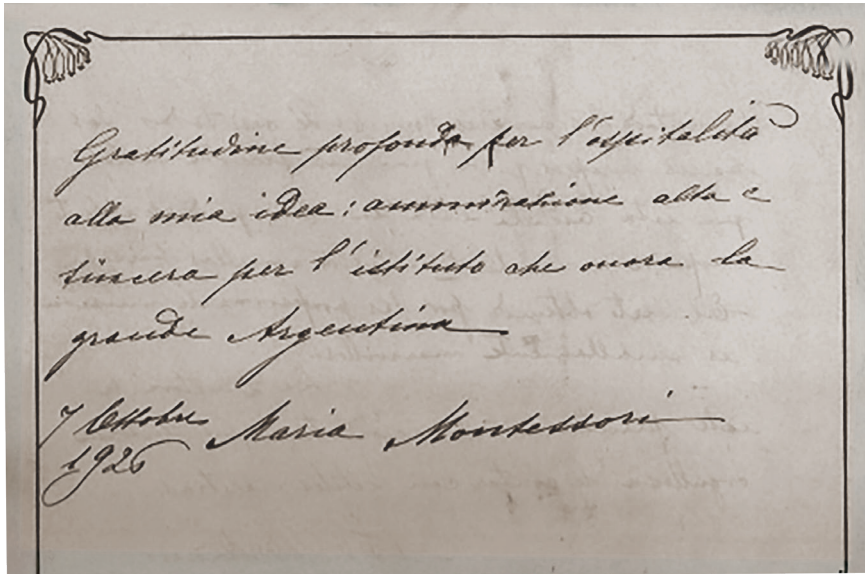 Gratitudine profonda per l'ospitalità
alla mia idea: ammirazione alta e
sincera per l'istituto che onora la
grande Argentina
7 Ottobre Maria Montessori
1926